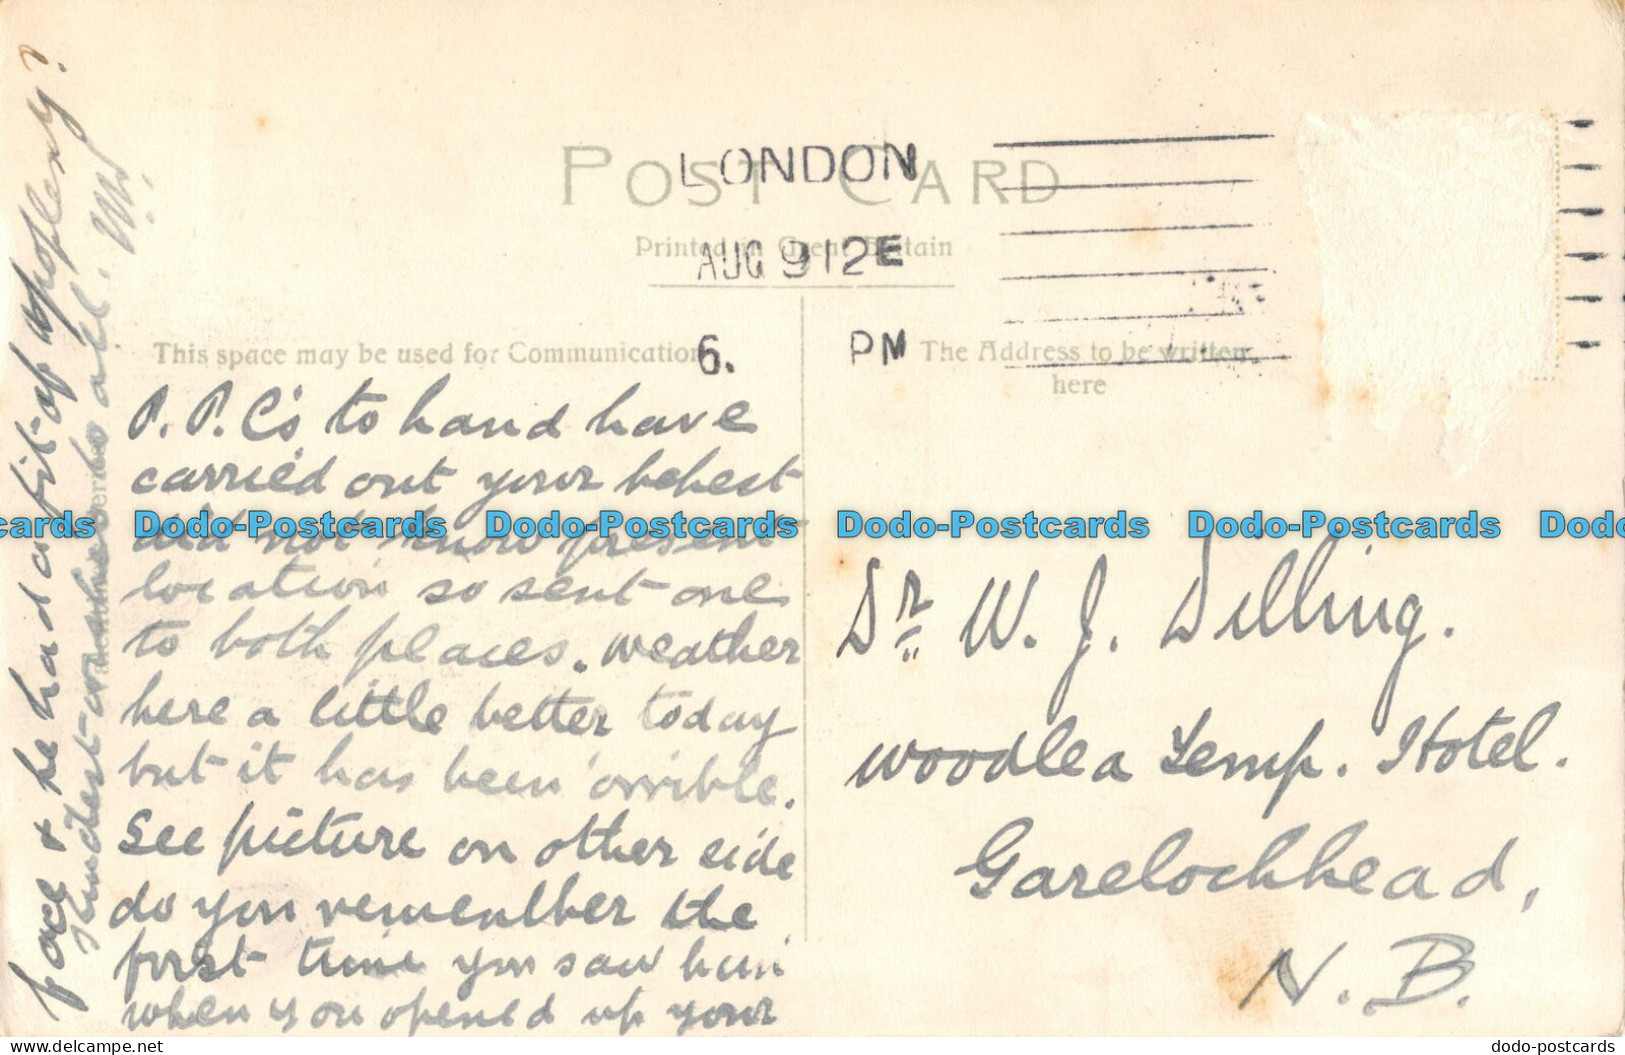 POST CARD
Printed in Great Britain
LONDON
AUG 9 12E
6. PM
This space may be used for Communication
The Address to be written
here
P.P.C's to hand have
carried out your behest
did not know present
location so sent one
to both places. weather
here a little better today
but it has been 'orrible.
See picture on other side
do you remember the
first time you saw him
when you opened up your
face & he had a fit of apoplexy?
all.
Dr W. J. Dilling.
Woodlea Temp. Hotel.
Garelochhead,
N. B.
cards Dodo-Postcards Dodo-Postcards Dodo-Postcards Dodo-Postcards Dodo
www.delcampe.net
dodo-postcards